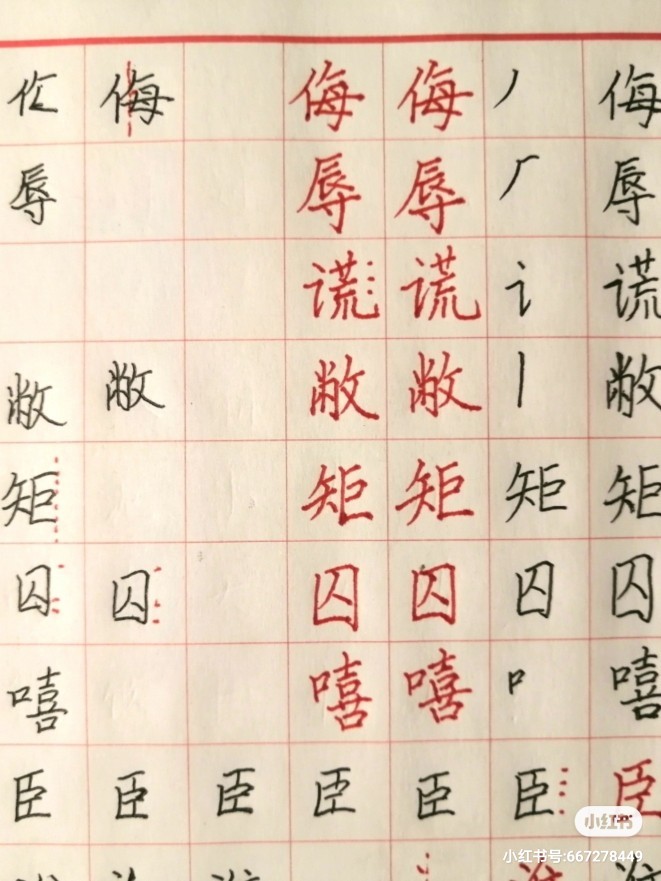 侮 侮 侮 丿 侮
辱 辱 辱 辱
谎 谎 讠 谎
敝 敝 敝 敝 丨 敝
矩 矩 矩 矩 矩
囚 囚 囚 囚 囚 囚
嘻 嘻 嘻 口 嘻
臣 臣 臣 臣 臣 臣 臣
小红书
小红书号:667278449